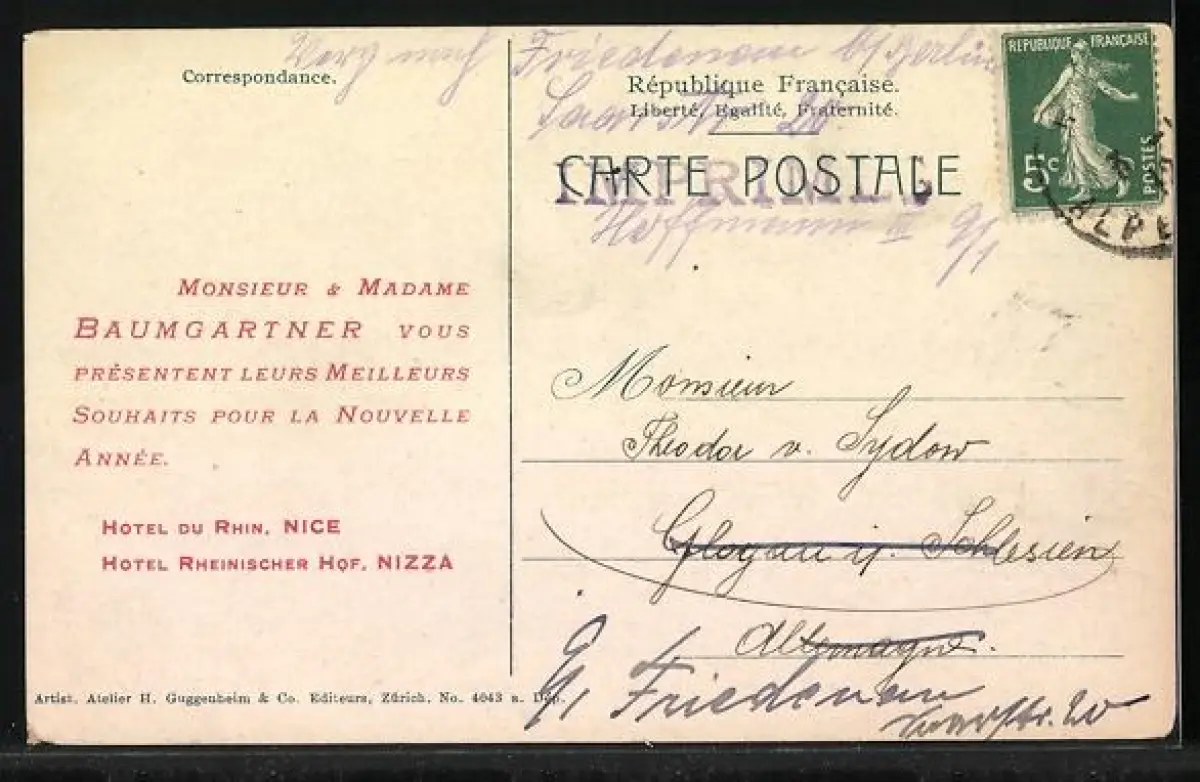 Correspondance.
Friedenau b/Berlin
République Française.
Liberté, Egalité, Fraternité.
CARTE POSTALE
IMPRIMÉ
Hoffmann III 9/1
REPUBLIQUE FRANÇAISE
5c
POSTES
ALPE
MONSIEUR & MADAME
BAUMGARTNER VOUS
PRÉSENTENT LEURS MEILLEURS
SOUHAITS POUR LA NOUVELLE
ANNÉE.
HOTEL DU RHIN, NICE
HOTEL RHEINISCHER HOF, NIZZA
Monsieur
Theodor v. Sydow
Glogau i/ Schlesien
Allemagne.
9/1 Friedenau
Artist. Atelier H. Guggenheim & Co. Editeurs, Zürich. No. 4643 a. Dép.